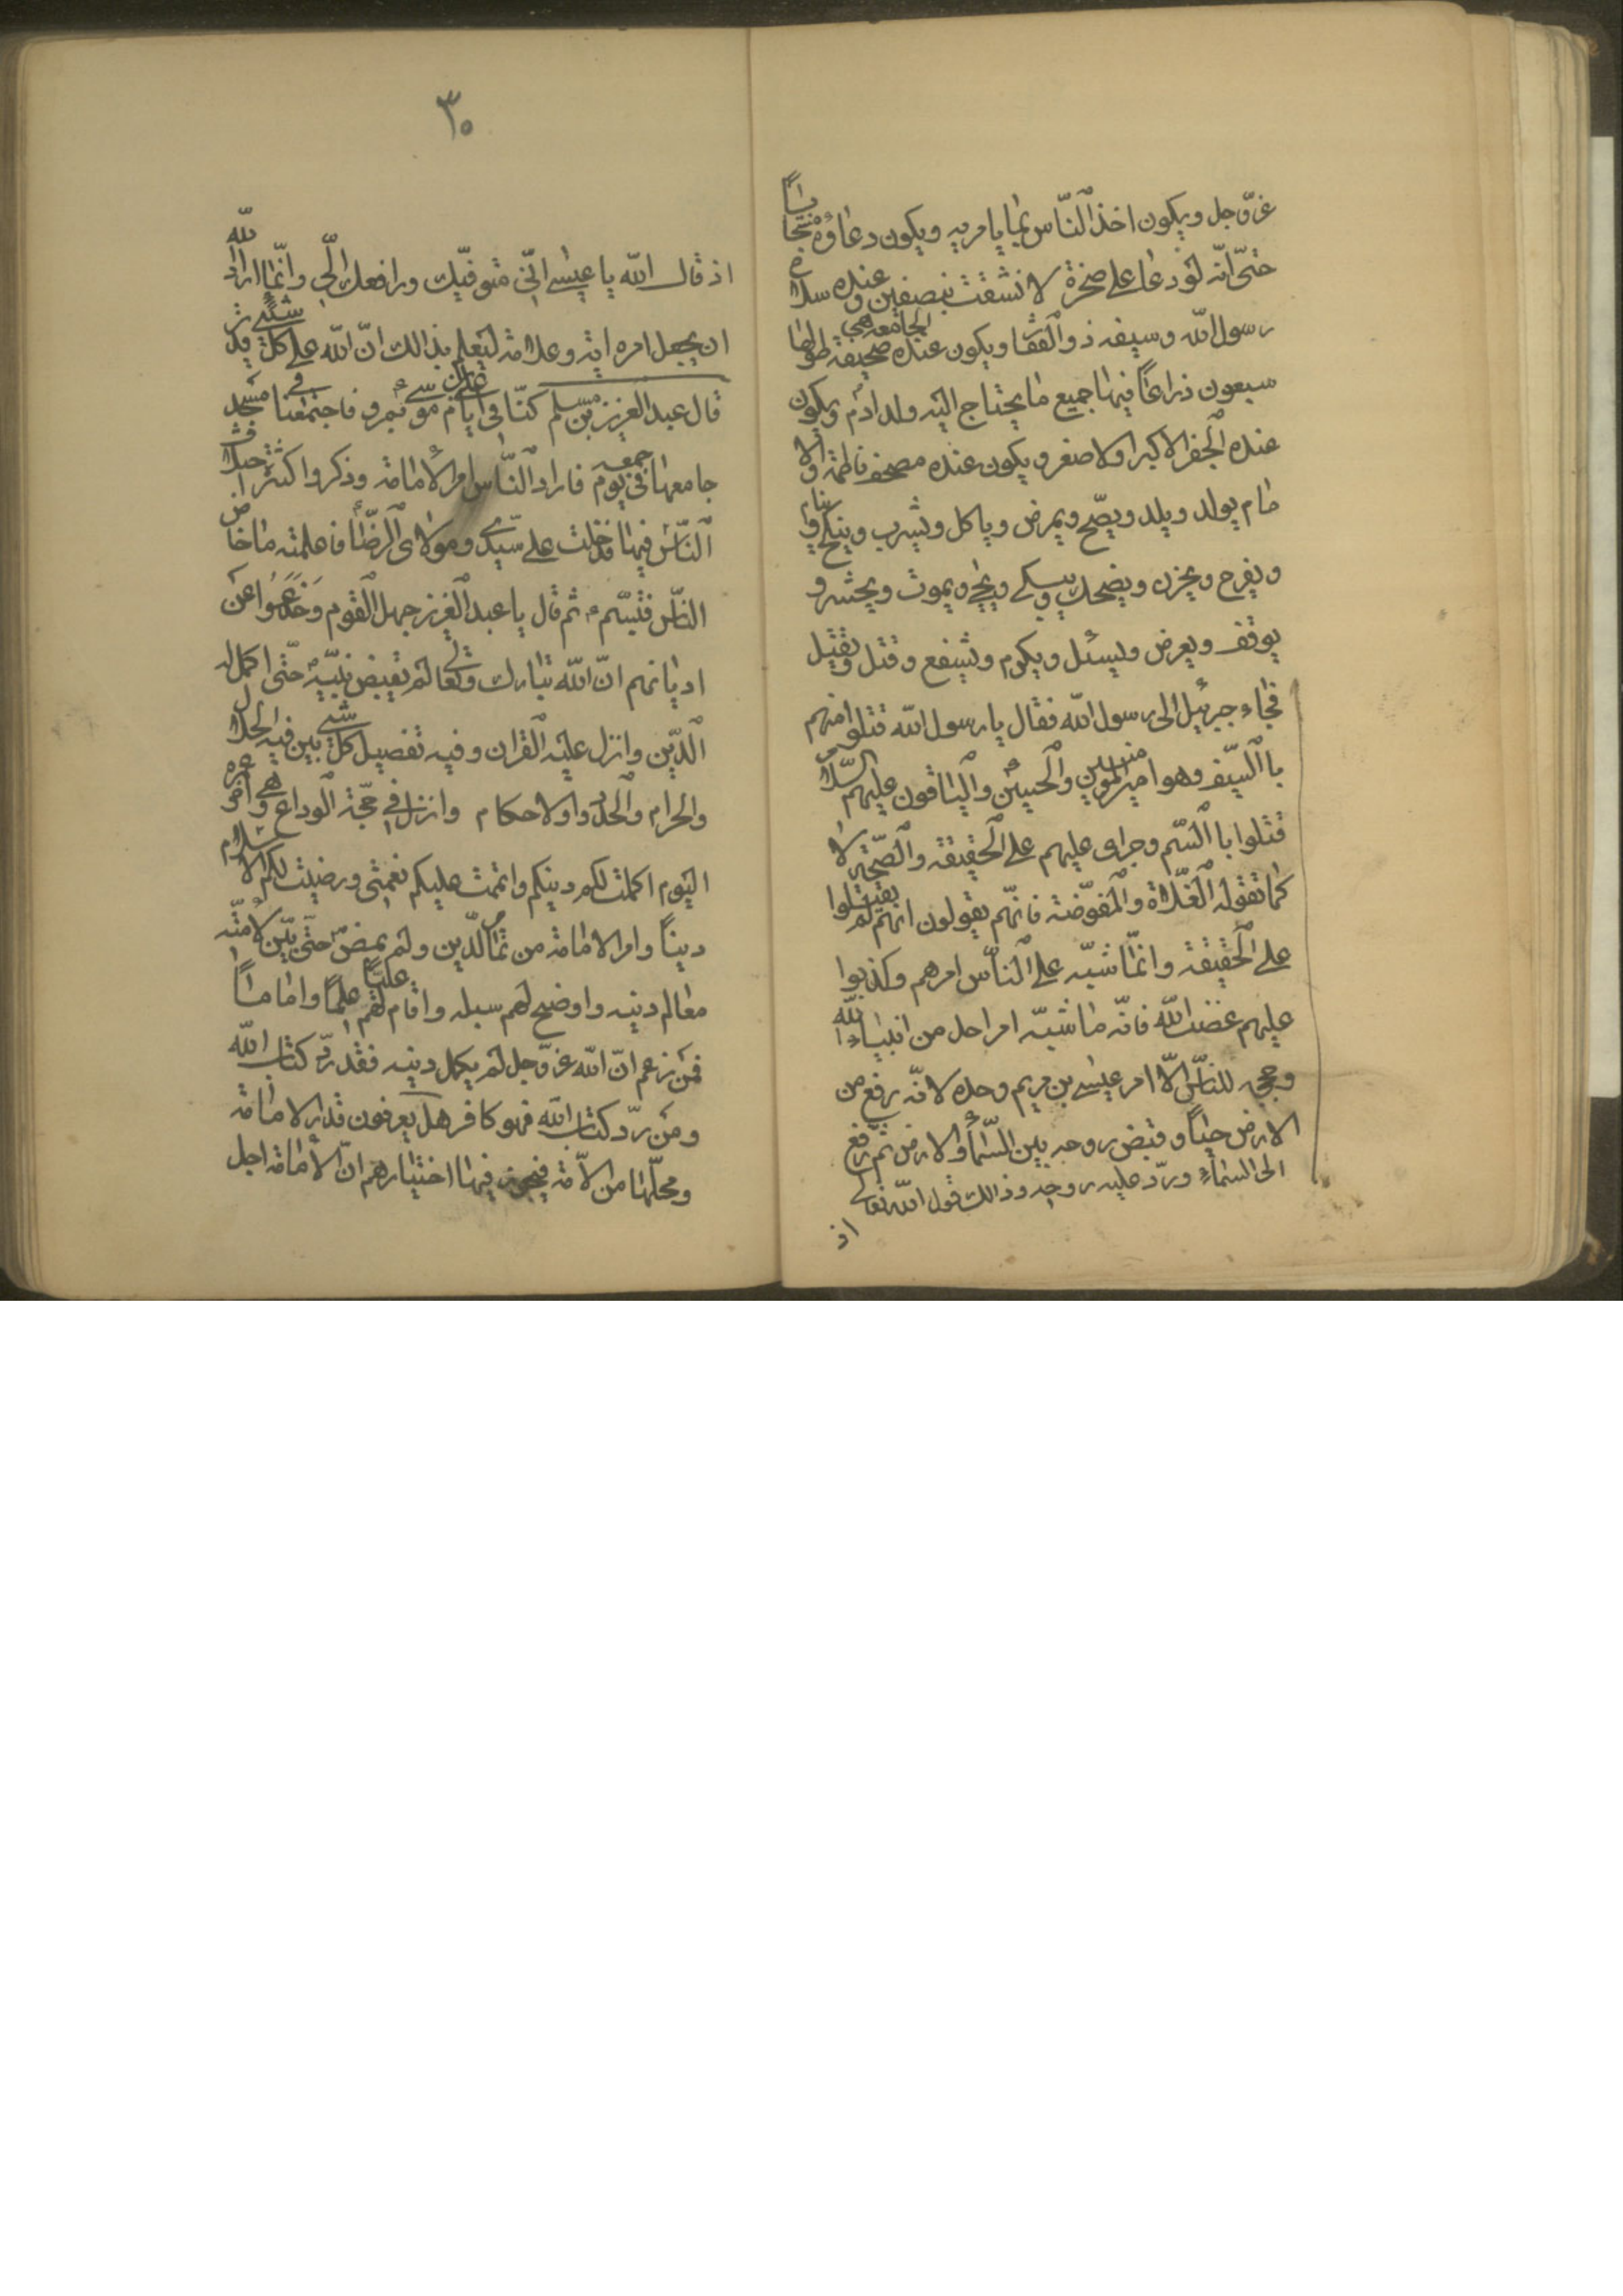 عزّ وجل ويكون اخذ النّاس بما يامر به ويكون دعاؤه مستجاباً
حتّى انّه لو دعا على صخرة لانشقت بنصفين وعنده سلاح
رسول الله وسيفه ذو الفقار ويكون عنده الجامعه هى صحيفة طولها
سبعون ذراعاً فيها جميع ما يحتاج اليه ولد ادم ويكون
عنده الجفر الاكبر والاصغر ويكون عنده مصحف فاطمة والا
مام يولد ويلد ويصّح ويمرض وياكل ويشرب وينكح وينام
ويفرح ويحزن ويضحك ويبكى ويحيى ويموت ويحشر و
يوقف ويعرض ويسئل ويكرم ويشفع وقتل ويقتل
فجاء جبرئيل الى رسول الله فقال يا رسول الله قتلوا منهم
باالسّيف وهو امير المومنين والحسين والباقون عليهم السّلام
قتلوا باالسّم وجرى عليهم على الحقيقة والصّحّة لا
كما تقوله الغلاة والمفوّضة فانّهم يقولون انهم لم يقتلوا
على الحقيقة وانّما شبّه على النّاس امرهم وكذبوا
عليهم غضب الله فانّه ما شبّه امر احد من انبياء الله
وحججه للنّاس الّا امر عيسى بن مريم وحده لانّه رفع من
الارض حيّاً وقبض روحه بين السّماء والارض ثم رفع
الى السماء وردّ عليه روحه وذالك قول الله تعالى
اذ
٣٠
اذ قال الله يا عيسى انّى متوفّيك ورافعك الّى وانّما اراد الله
ان يجعل امره اية وعلامة ليعلم بذالك انّ الله على كل شىء قدير
قال عبد العزيز بن مسلم كنّا فى ايام على بن موسى بمرو فاجتمعنا فى مسجد
جامعها فى يوم جمعه فاراد النّاس امر الامامة وذكروا كثرة اختلاف
النّاس فيها فدخلت على سيّدى ومولاى الرضّا فاعلمته ما خاض
النّاس فتبسّم ثم قال يا عبد العزيز جهل القوم وخدعوا عن
اديانهم انّ الله تبارك وتعالى لم يقبض نبيّه حتّى اكمل له
الدّين وانزل عليه القران وفيه تفصيل كل شىء بين فيه الحلال
والحرام والحدود والاحكام وانزل فى حجّة الوداع وهى اخر عمره
اليوم اكملت لكم دينكم واتممت عليكم نعمتى ورضيت لكم الاسلام
ديناً وامر الامامة من تمام الدّين ولم يمض حتّى بيّن لامّته
معالم دينه واوضح لهم سبله واقام لهم عليّاً علماً واماماً
فمن زعم انّ الله عزّ وجل لم يكمل دينه فقد ردّ كتاب الله
ومن ردّ كتاب الله فهو كافر هل يعرفون قدر الامامة
ومحلّها من الامّة فيجوز فيها اختيارهم انّ الامامة اجل